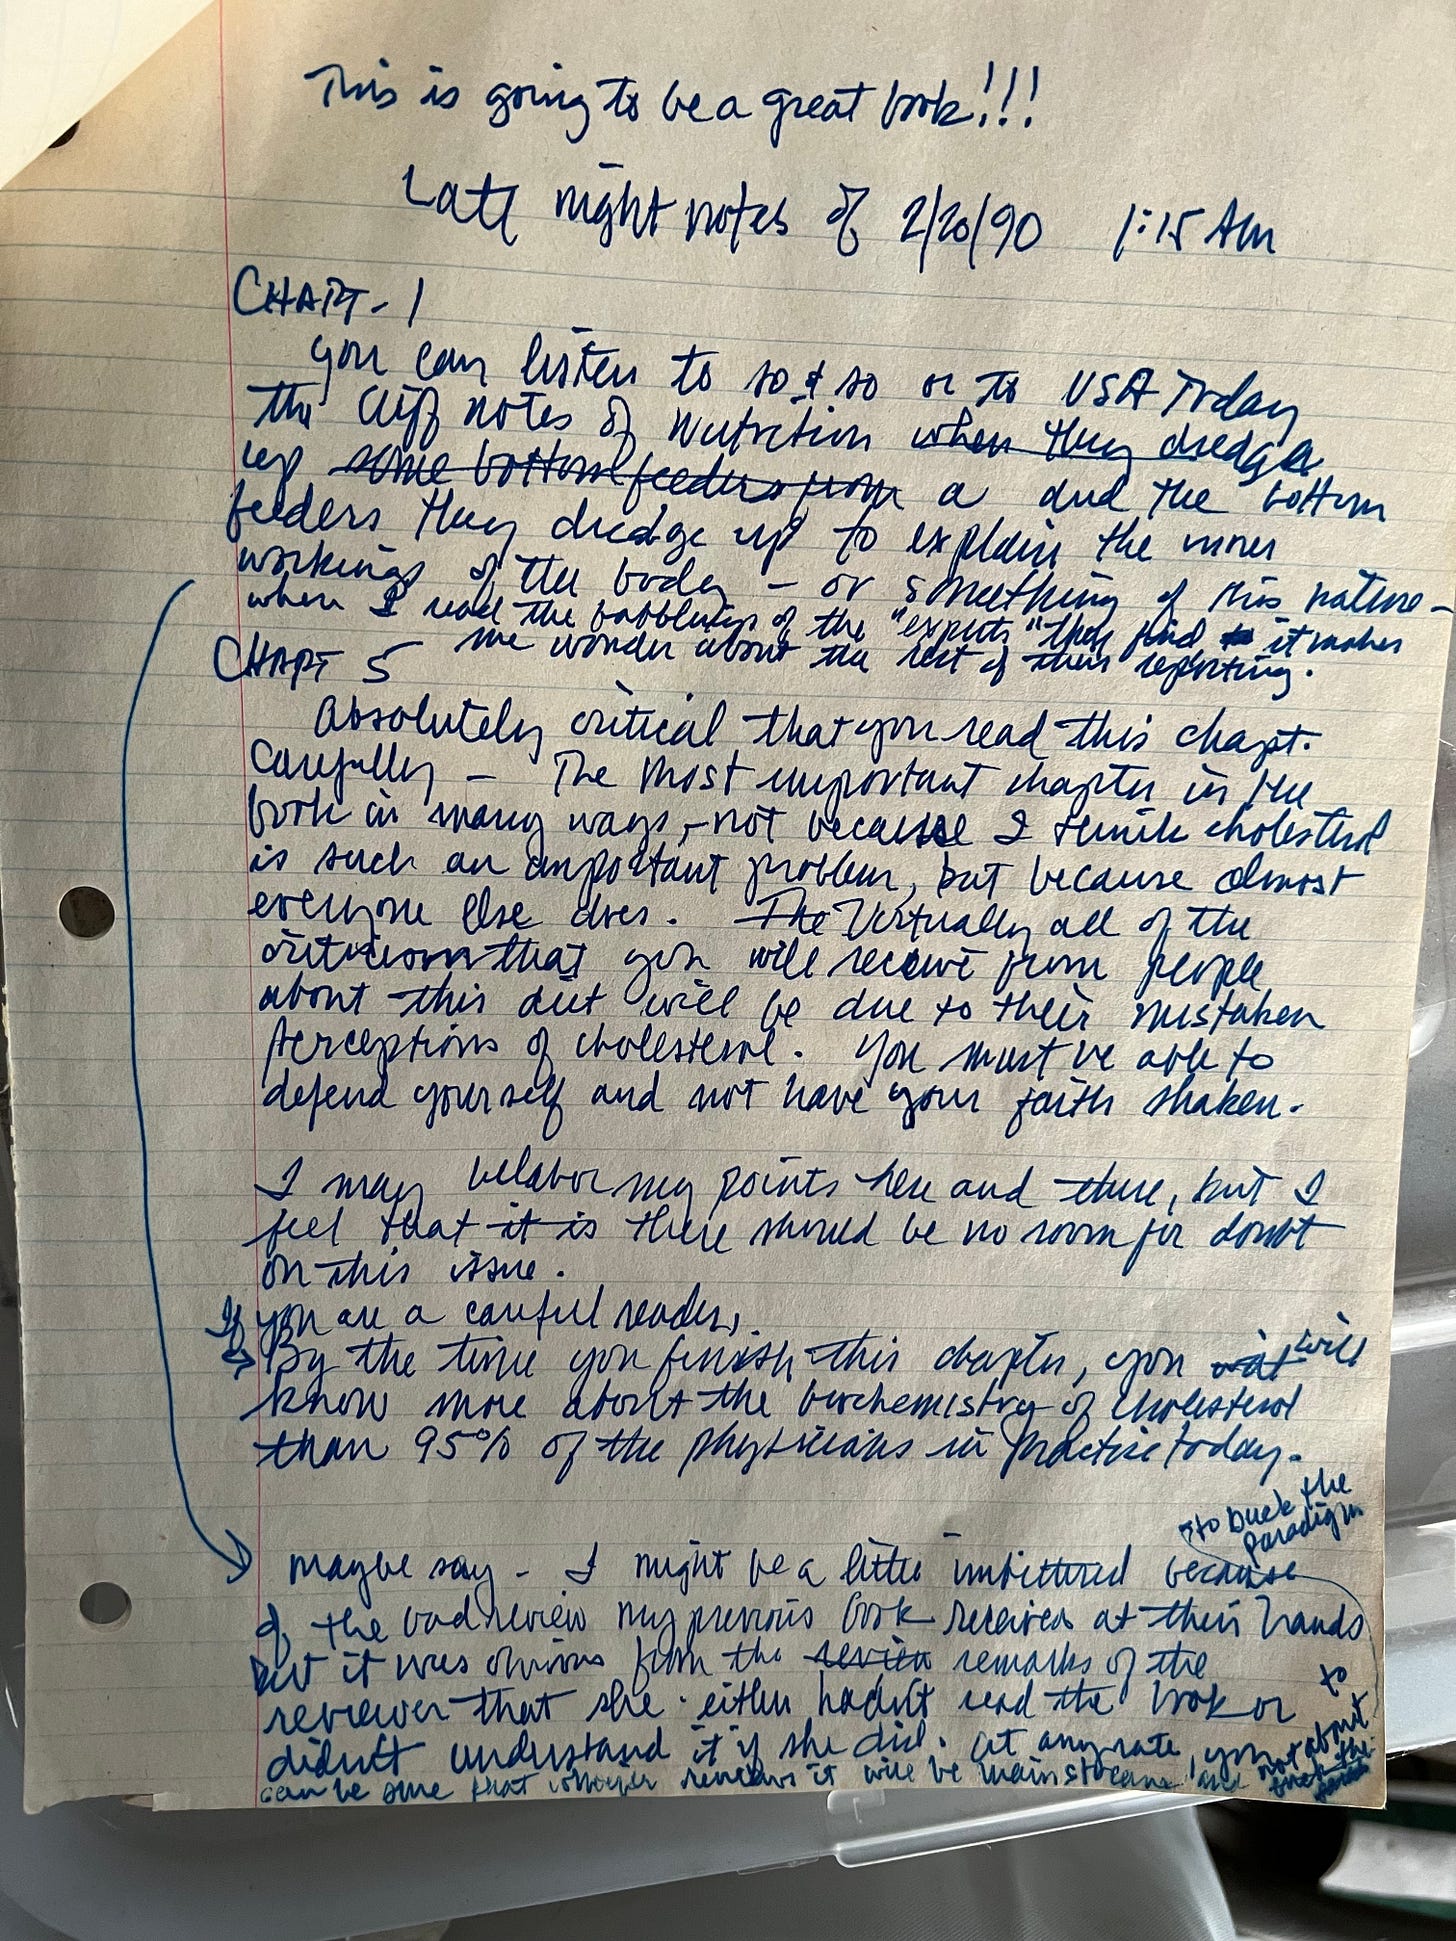 This is going to be a great book!!!
Late night notes of 2/20/90 1:15 AM
CHAPT-1
you can listen to so & so or to USA Today
the Cliff notes of Nutrition when they dredge
up some bottom feeders from a and the bottom
feeders they dredge up to explain the inner
workings of the body – or something of this nature –
when I read the babblings of the "experts" they find it makes
me wonder about the rest of their reporting.
CHAPT 5
Absolutely critical that you read this chapt.
carefully – The most important chapter in the
book in many ways, – not because I think cholesterol
is such an important problem, but because almost
everyone else does. The Virtually all of the
criticism that you will receive from people
about this diet will be due to their mistaken
perceptions of cholesterol. You must be able to
defend yourself and not have your faith shaken.
I may belabor my points here and there, but I
feel that it is there should be no room for doubt
on this issue.
If you are a careful reader,
By the time you finish this chapter, you will
know more about the biochemistry of cholesterol
than 95% of the physicians in practice today.
to buck the
paradigm
maybe say – I might be a little imbittered because
of the bad review my previous book received at their hands
but it was obvious from the review remarks of the
reviewer that she either hadn't read the book or
didn't understand it if she did. At any rate, you
can be sure that whoever reviews it will be mainstream and not about
to
buck the